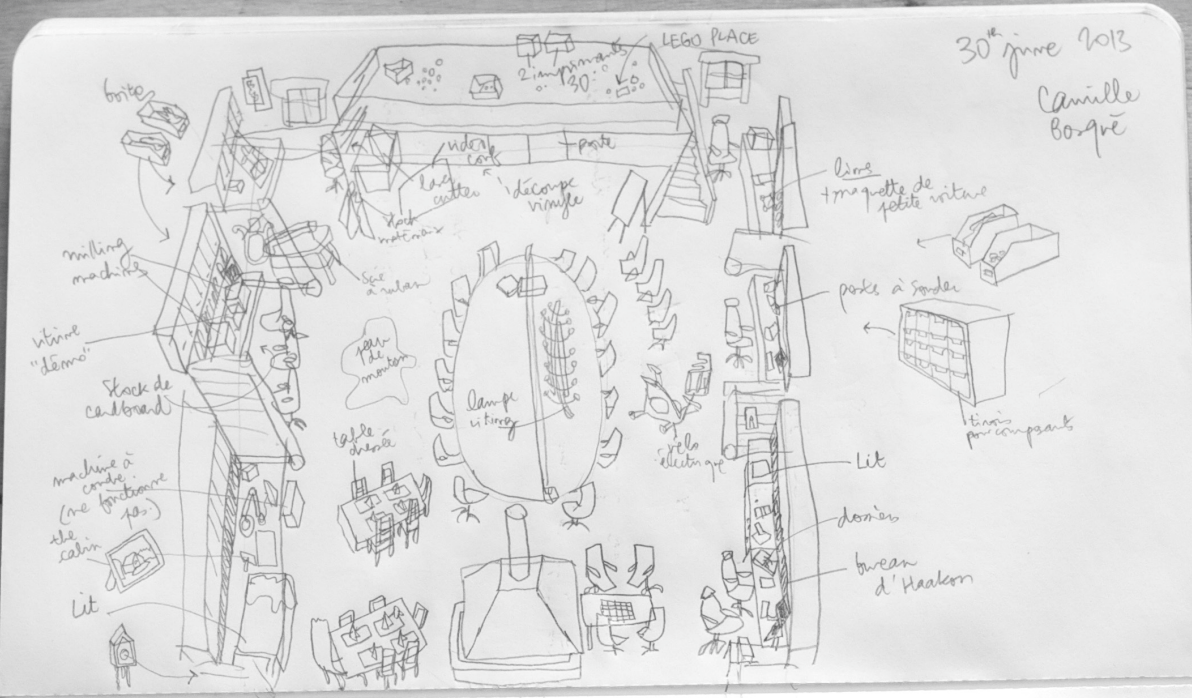 30th june 2013
Camille
Bosqué
LEGO PLACE
2 imprimantes
3D
boîte
vidéo
conf
+ poste
laser
cutter
découpe
vinyle
stock
matériaux
livres
+ maquette de
petite voiture
milling
machines
scie
à ruban
postes à souder
vitrine
"démo"
peau
de
mouton
Stock de
cardboard
lampe
viking
tiroirs
pour composants
table
dressée
vélo
électrique
Lit
machine à
coudre
(ne fonctionne
pas)
the
cabin
dossiers
bureau
d'Haakon
Lit